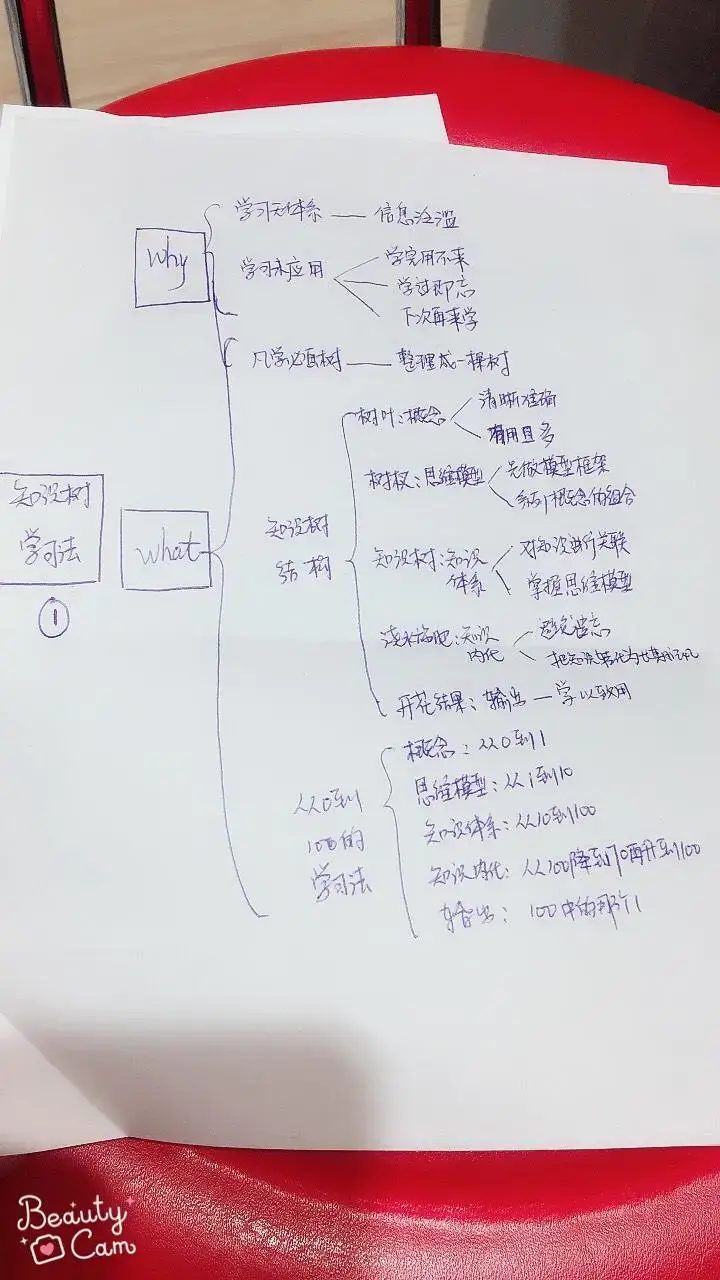 知识树
学习法
①
why
学习无体系 — 信息泛滥
学习未应用
学完用不来
学过即忘
下次再来学
what
凡学必画树 — 整理成一棵树
知识树
结构
树叶：概念
清晰准确
有用且多
树杈：思维模型
先做模型框架
系列概念的组合
知识树：知识
体系
对知识进行关联
掌握思维模型
浇水施肥：知识
内化
避免遗忘
把知识转化为
开花结果：输出 — 学以致用
从0到
100的
学习法
概念：从0到1
思维模型：从1到10
知识体系：从10到100
知识内化：从100降到70再升到100
输出：100中的那个1
Beauty
Cam